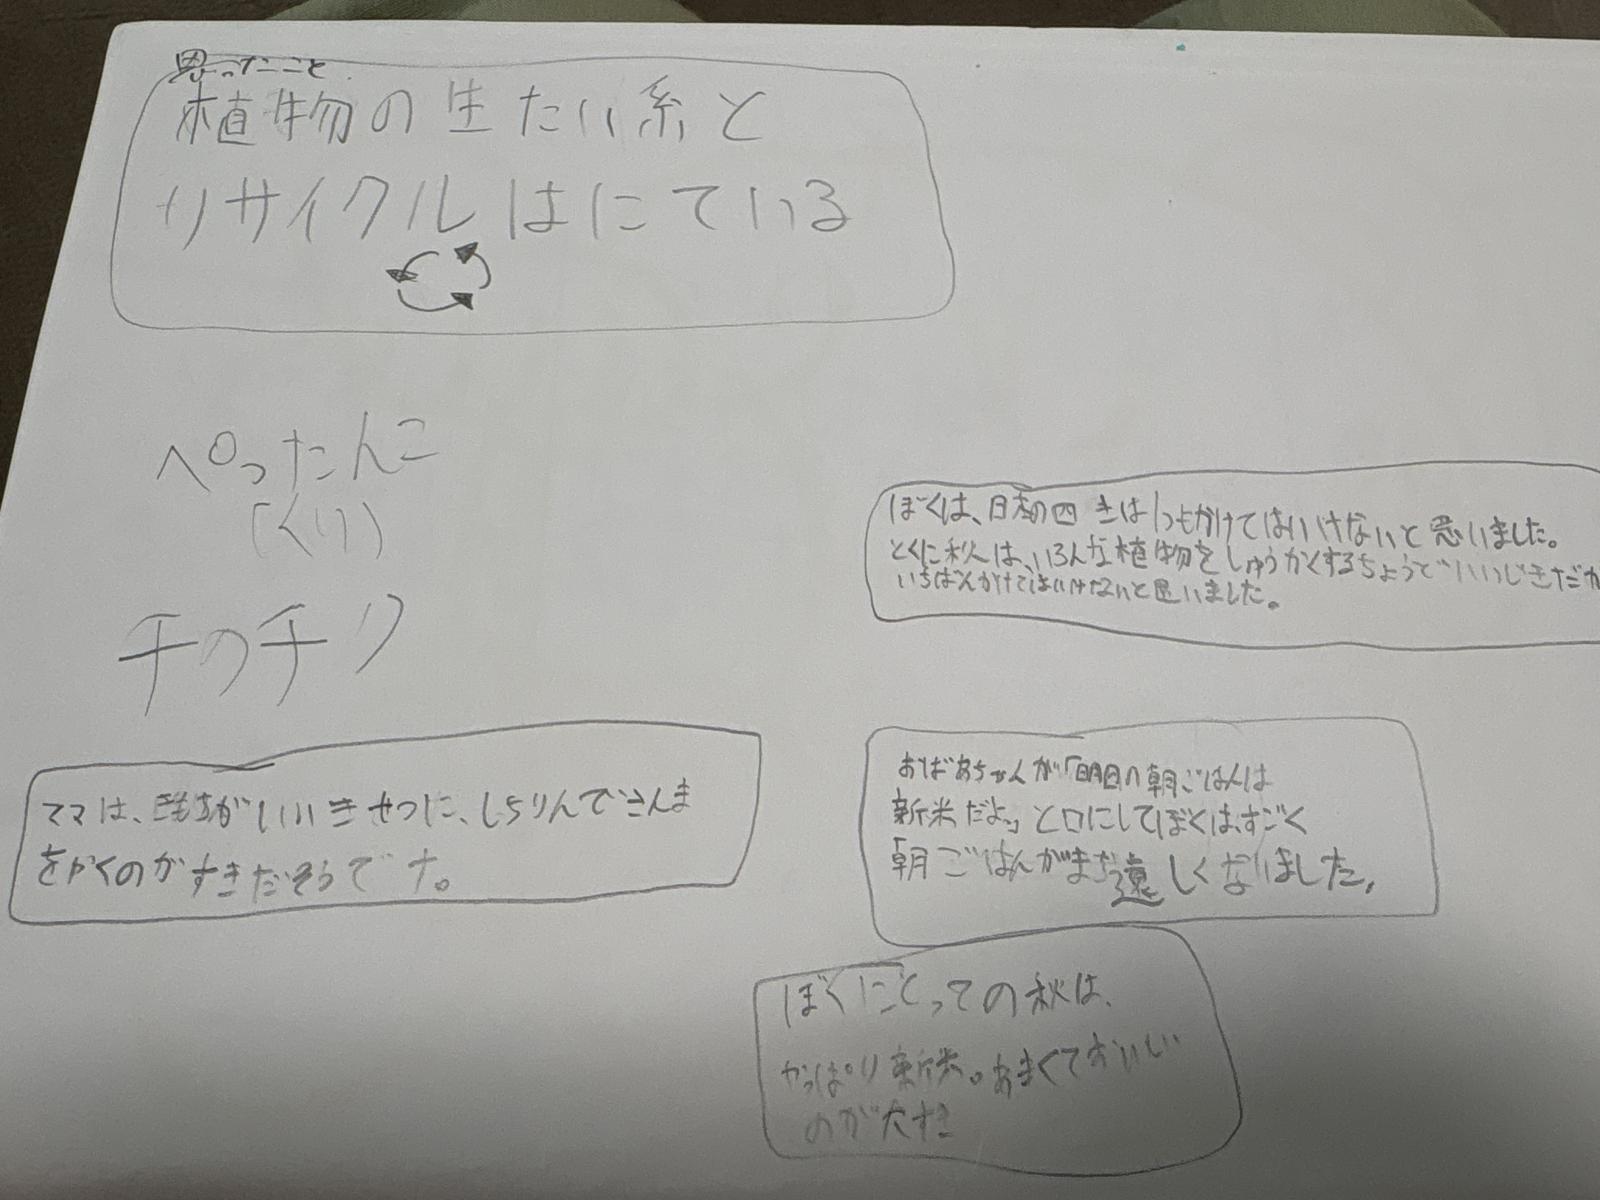 思ったこと
植物の生たい系と
リサイクルはにている
ぺったんこ
(くり)
チのチク
ぼくは、日本の四きは1つもかけてはいけないと思いました。
とくに秋は、いろんな植物をしゅうかくするちょうどいいじきだか
いちばんかけてはいけないと思いました。
ママは、気もちがいいきせつに、しちりんでさんま
をやくのがすきだそうです。
おばあちゃんが「明日の朝ごはんは
新米だよ。」と口にしてぼくは、すごく
朝ごはんがまち遠しくなりました。
ぼくにとっての秋は、
やっぱり新米。あまくておいしい
のが大すき